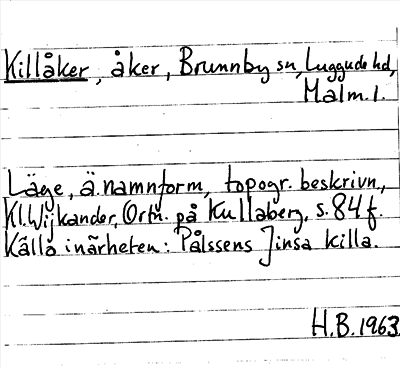 Killåker, åker, Brunnby sn, Luggude hd,
Malm. l.
Läge, ä. namnform, topogr. beskrivn.,
Kl. Wijkander, Ortn. på Kullaberg, s. 84 f.
Källa i närheten: Pålssens Jinsa killa.
H.B. 1963.